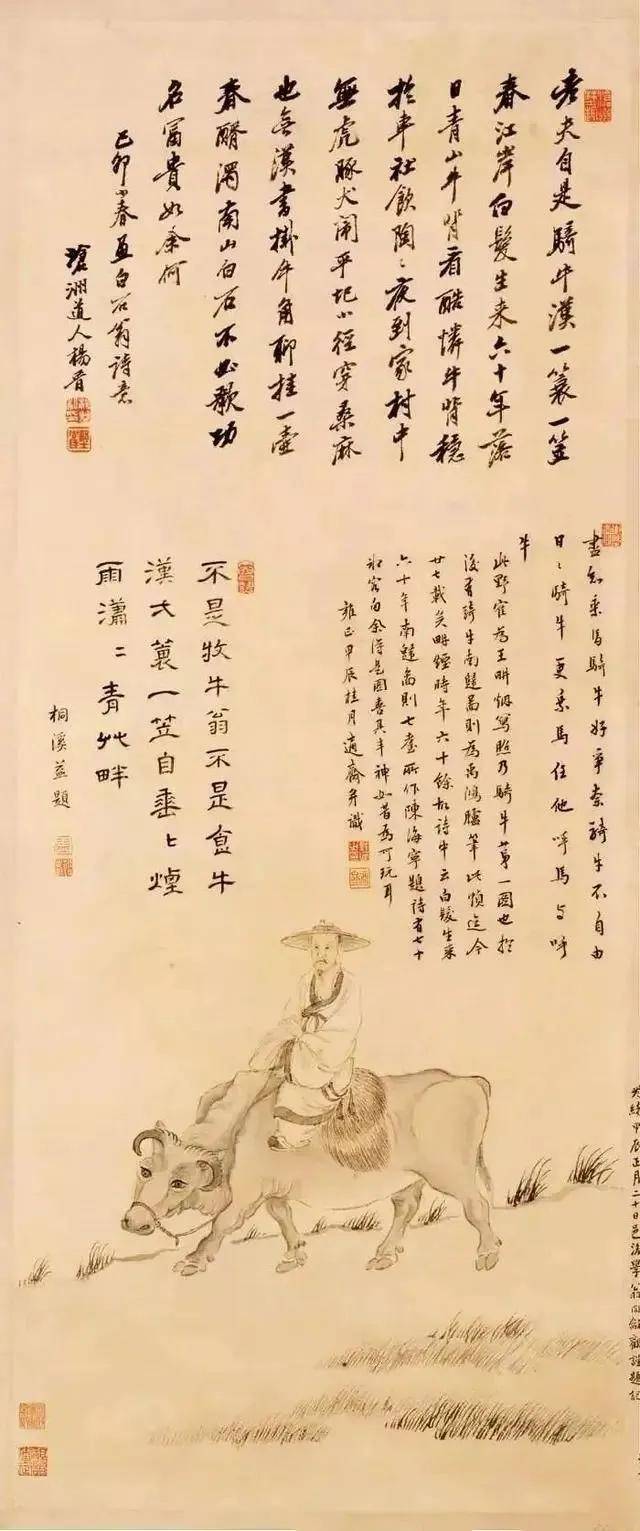 老夫自是騎牛漢一蓑一笠
春江岸白髮生来六十年落
日青山牛背看酷憐牛背穩
於車社飲陶〻夜到家村中
無虎豚犬鬧平圯小徑穿桑麻
也無漢書掛牛角聊挂一壺
春醑濁南山白石不必歌功
名富貴如余何
己卯小春画白石翁詩意
道人楊晋
盡知乘馬騎牛好爭奈騎牛不自由
日〻騎牛更乘馬任他呼馬与呼
牛
此野寉為王畊烟寫照乃騎牛第一圖也於
後有騎牛南圖則為禹鴻臚筆此幀迄今
廿七載矣畊煙時年六十餘故詩中云白髮生来
六十年南圖則七耋所作陳海寧題詩有七十
白余得是圖喜其丰神如昔為可玩耳
雍正甲辰桂月適齋并識
不是牧牛翁不是食牛
漢大蓑一笠自垂〻煙
雨瀟〻青艸畔
桐溪益題
光緒甲辰正月二十日邑後學翁同龢觀謹題記